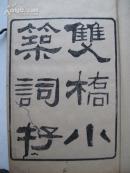 雙橋小
築詞存